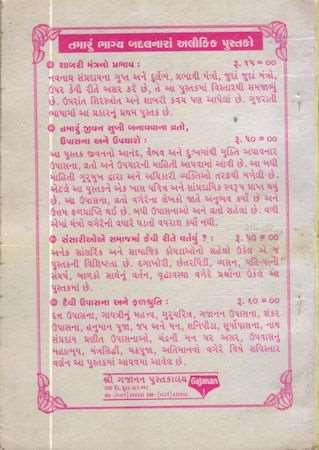 તમારું ભાગ્ય બદલનારાં અલૌકિક પુસ્તકો
શાબરી મંત્રનો પ્રભાવ : રૂ. ૧૫ = ૦૦
નવનાથ સંપ્રદાયના ગુપ્ત અને દુર્લભ, પ્રભાવી મંત્રો, જુદાં જુદાં મંત્રો,
ઉપર કેવી રીતે અસર કરે છે, તે આ પુસ્તકમાં વિસ્તારથી સમજાવ્યું
છે. ઉપરાંત સિદ્ધસ્તોત્ર અને શાબરી કવચ પણ આપેલાં છે. ગુજરાતી
ભાષામાં આ પ્રકારનું પ્રથમ પુસ્તક છે.
તમારું જીવન સુખી બનાવવાના વ્રતો,
ઉપાસના અને ઉપચારો : રૂ. ૫૦ = ૦૦
આ પુસ્તક જીવનનો આનંદ, વૈભવ અને દુઃખમાંથી મુક્તિ અપાવનાર
ઉપાસના, વ્રતો અને ઉપચારની માહિતી આપવામાં આવી છે. આ બધી
માહિતી ગુરુમુખ દ્વારા અને અધિકારી વ્યક્તિઓ તરફથી મળેલી છે.
એટલે આ પુસ્તકને એક ખાસ પવિત્ર અને સાંપ્રદાયિક સ્વરૂપ પ્રાપ્ત થયું
છે. આ ઉપાસના, વ્રતો વગેરેના લેખકો જાતે અનુભવ કર્યો છે અને
ઉત્તમ ફળપ્રાપ્તિ થઈ છે. બધી ઉપાસનાઓ અને વ્રતો સહેલાં છે. વળી
એમાં મંત્રો વગેરેની વધારે પડતો વપરાશ કર્યો નથી.
સંસારીઓએ સમાજમાં કેવી રીતે વર્તવું ? : રૂ. ૫૦ = ૦૦
અનેક સાંસારિક અને સામાજિક કોયડાઓનો સહેલો ઉકેલ એ આ
પુસ્તકની વિશિષ્ટતા છે. દગાખોરી, છેતરપિંડી, વ્યસન, પતિ-પત્નીનો
સંઘર્ષ, બાળકો સાથેનું વર્તન, વૃદ્ધાવસ્થા વગેરે પ્રશ્નોના ઉકેલ આ
પુસ્તકમાં છે.
દૈવી ઉપાસના અને ફળશ્રુતિ : રૂ. ૬૦ = ૦૦
દત્ત ઉપાસના, ગાયત્રીનું મહત્ત્વ, ગુરુચરિત્ર, ગજાનન ઉપાસના, શંકર
ઉપાસના, હનુમાન પૂજા, જપ અને મન, શનિપીડા, સૂર્યોપાસના, નાથ
સંપ્રદાય પ્રણીત ઉપાસનાઓ, ચંદ્રની મન પર અસર, ઉપવાસનું
મહાત્મ્ય, મંત્રસિદ્ધી, યંત્રપૂજા, અતિમાનવો વગેરે વિષે સવિસ્તાર
વર્ણન આ પુસ્તકમાં આપવામાં આવેલ છે.
શ્રી ગજાનન પુસ્તકાલય
Gajanan